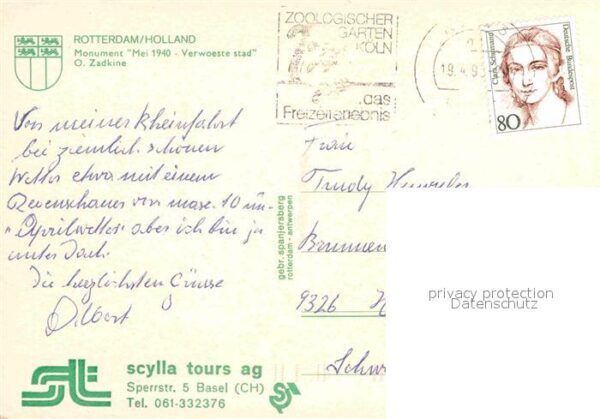 ROTTERDAM/HOLLAND
Monument "Mei 1940 - Verwoeste stad"
O. Zadkine
ZOOLOGISCHER
GARTEN
KÖLN
...das
Freizeiterlebnis
19.4.95
Clara Schumann
Deutsche Bundespost
80
Von meiner Rheinfahrt
bei ziemlich schönem
Wetter etwa mit einem
Regenschauer von max. 10 min
"Aprilwetter" aber ich bin ja
unter Dach.
Die herzlichsten Grüsse
Albert
Frau
Trudy
Brunnen
9326
Schw
gebr. spanjersberg
rotterdam - antwerpen
privacy protection
Datenschutz
scylla tours ag
Sperrstr. 5 Basel (CH)
Tel. 061-332376